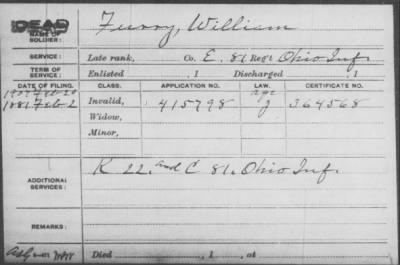 DEAD
NAME OF SOLDIER: Furry, William
SERVICE: Late rank, Co. E, 81 Reg't Ohio Inf.
TERM OF SERVICE: Enlisted , 1 Discharged , 1
DATE OF FILING. CLASS. APPLICATION NO. LAW. CERTIFICATE NO.
Age
1881 Feb-2 Invalid, 415798 J 364568
Widow,
Minor,
ADDITIONAL SERVICES: K 22. and C 81. Ohio Inf.
REMARKS:
Died , 1 , at